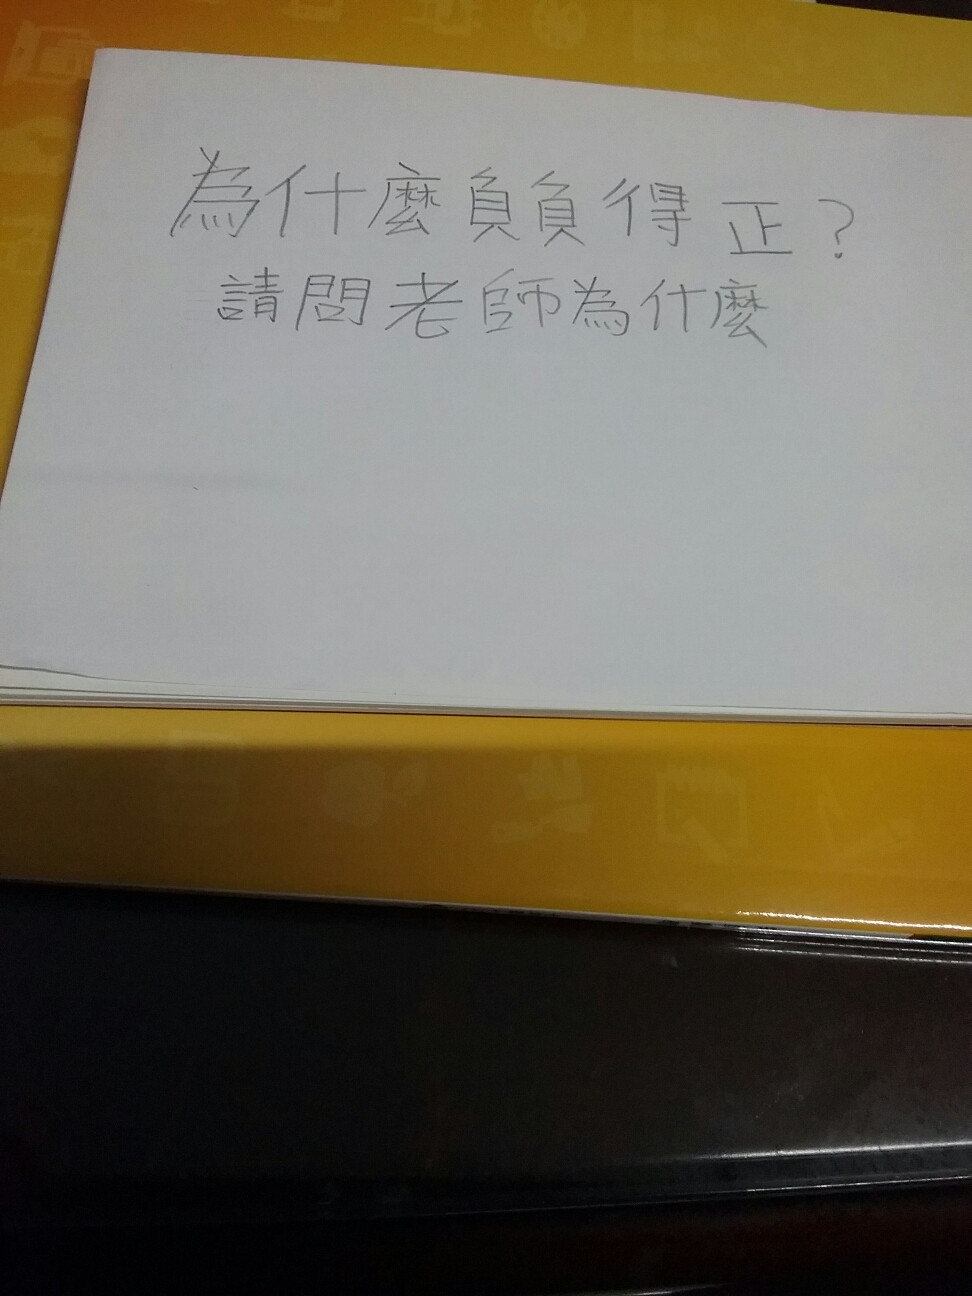 為什麼負負得正?
請問老師為什麼